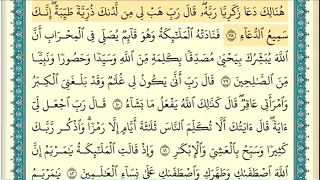 هُنَالِكَ دَعَا زَكَرِيَّا رَبَّهُۥ قَالَ رَبِّ هَبْ لِى مِن لَّدُنكَ ذُرِّيَّةً طَيِّبَةً إِنَّكَ
سَمِيعُ ٱلدُّعَآءِ ٣٨ فَنَادَتْهُ ٱلْمَلَٰٓئِكَةُ وَهُوَ قَآئِمٌ يُصَلِّى فِى ٱلْمِحْرَابِ أَنَّ
ٱللَّهَ يُبَشِّرُكَ بِيَحْيَىٰ مُصَدِّقًۢا بِكَلِمَةٍ مِّنَ ٱللَّهِ وَسَيِّدًا وَحَصُورًا وَنَبِيًّا
مِّنَ ٱلصَّٰلِحِينَ ٣٩ قَالَ رَبِّ أَنَّىٰ يَكُونُ لِى غُلَٰمٌ وَقَدْ بَلَغَنِىَ ٱلْكِبَرُ
وَٱمْرَأَتِى عَاقِرٌ قَالَ كَذَٰلِكَ ٱللَّهُ يَفْعَلُ مَا يَشَآءُ ٤٠ قَالَ رَبِّ ٱجْعَل لِّىٓ
ءَايَةً قَالَ ءَايَتُكَ أَلَّا تُكَلِّمَ ٱلنَّاسَ ثَلَٰثَةَ أَيَّامٍ إِلَّا رَمْزًا وَٱذْكُر رَّبَّكَ
كَثِيرًا وَسَبِّحْ بِٱلْعَشِىِّ وَٱلْإِبْكَٰرِ ٤١ وَإِذْ قَالَتِ ٱلْمَلَٰٓئِكَةُ يَٰمَرْيَمُ إِنَّ
ٱللَّهَ ٱصْطَفَىٰكِ وَطَهَّرَكِ وَٱصْطَفَىٰكِ عَلَىٰ نِسَآءِ ٱلْعَٰلَمِينَ ٤٢ يَٰمَرْيَمُ